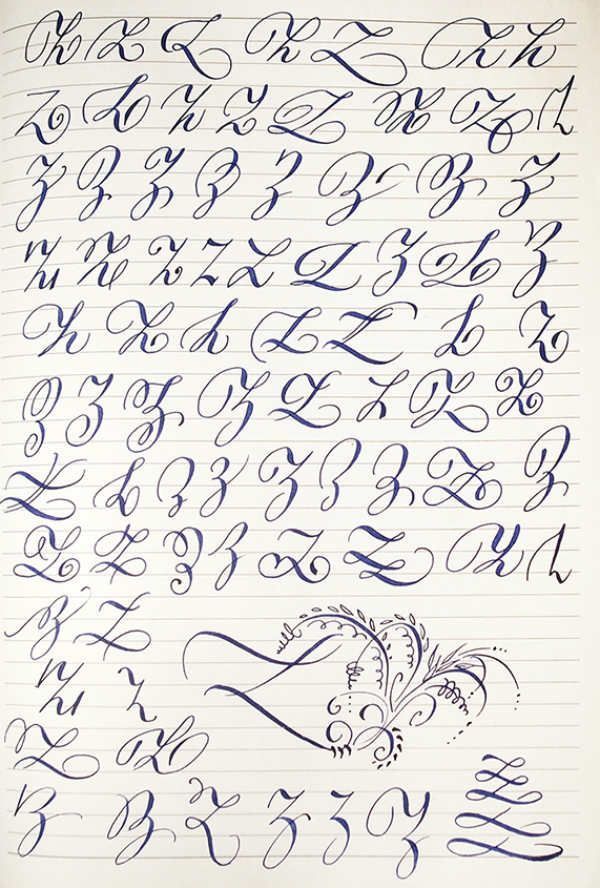 Z Z Z Z Z Z Z
Z Z Z Z Z Z Z Z
Z Z Z Z Z Z Z Z
Z Z Z Z Z Z Z Z Z
Z Z Z Z Z Z Z
Z Z Z Z Z Z Z Z
Z Z Z Z Z Z Z Z Z
Z Z Z Z Z Z Z Z
Z Z
Z Z Z
Z Z
Z Z Z Z Z Z Z